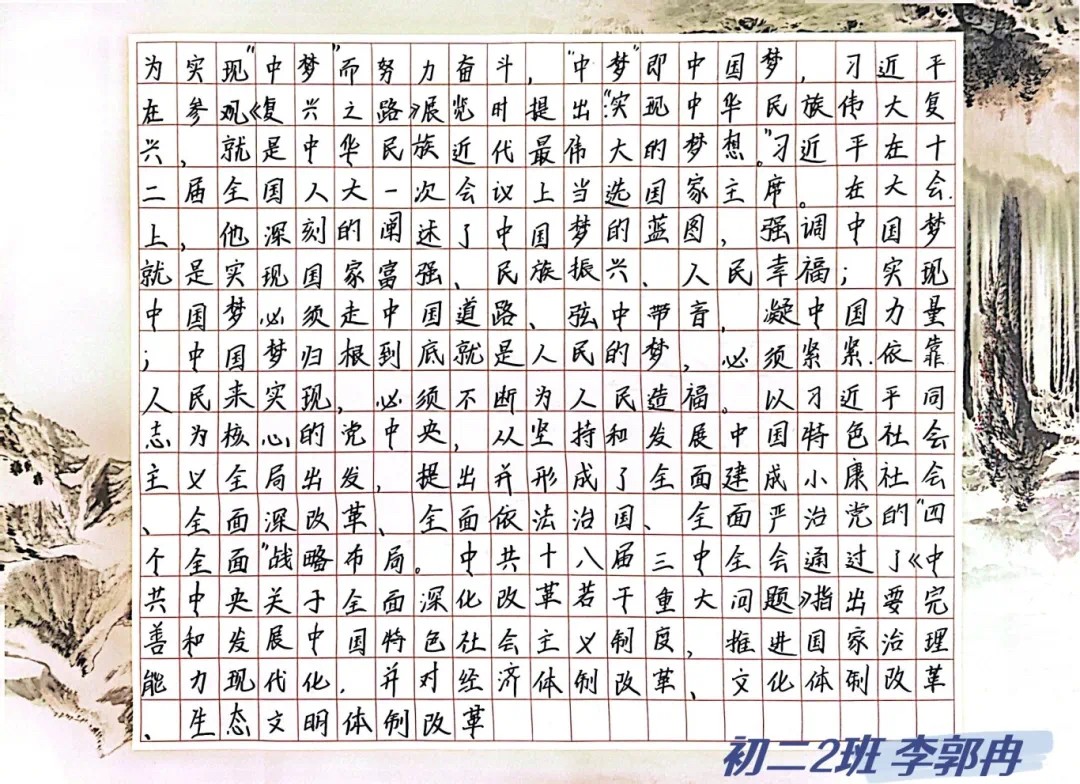 为实现“中梦”而努力奋斗，“中梦”即中国梦，习近平
在参观《复兴之路》展览时提出：“实现中华民族伟大复
兴，就是中华民族近代最伟大的梦想。”习近平在十
二届全国人大一次会议上当选国家主席。在大会
上，他深刻的阐述了中国梦的蓝图，强调中国梦
就是实现国家富强、民族振兴、人民幸福；实现
中国梦必须走中国道路、弦中带音，凝中国力量
；中国梦归根到底就是人民的梦，必须紧紧依靠
人民来实现，必须不断为人民造福。以习近平同
志为核心的党中央，从坚持和发展中国特色社会
主义全局出发，提出并形成了全面建成小康社会
、全面深改革、全面依法治国、全面严治党的“四
个全面”战略布局。中共十八届三中全会通过了《中
共中央关于全面深化改革若干重大问题》指出要完
善和发展中国特色社会主义制度，推进国家治理
能力现代化，并对经济体制改革、文化体制改革
、生态文明体制改革
初二2班 李郭冉